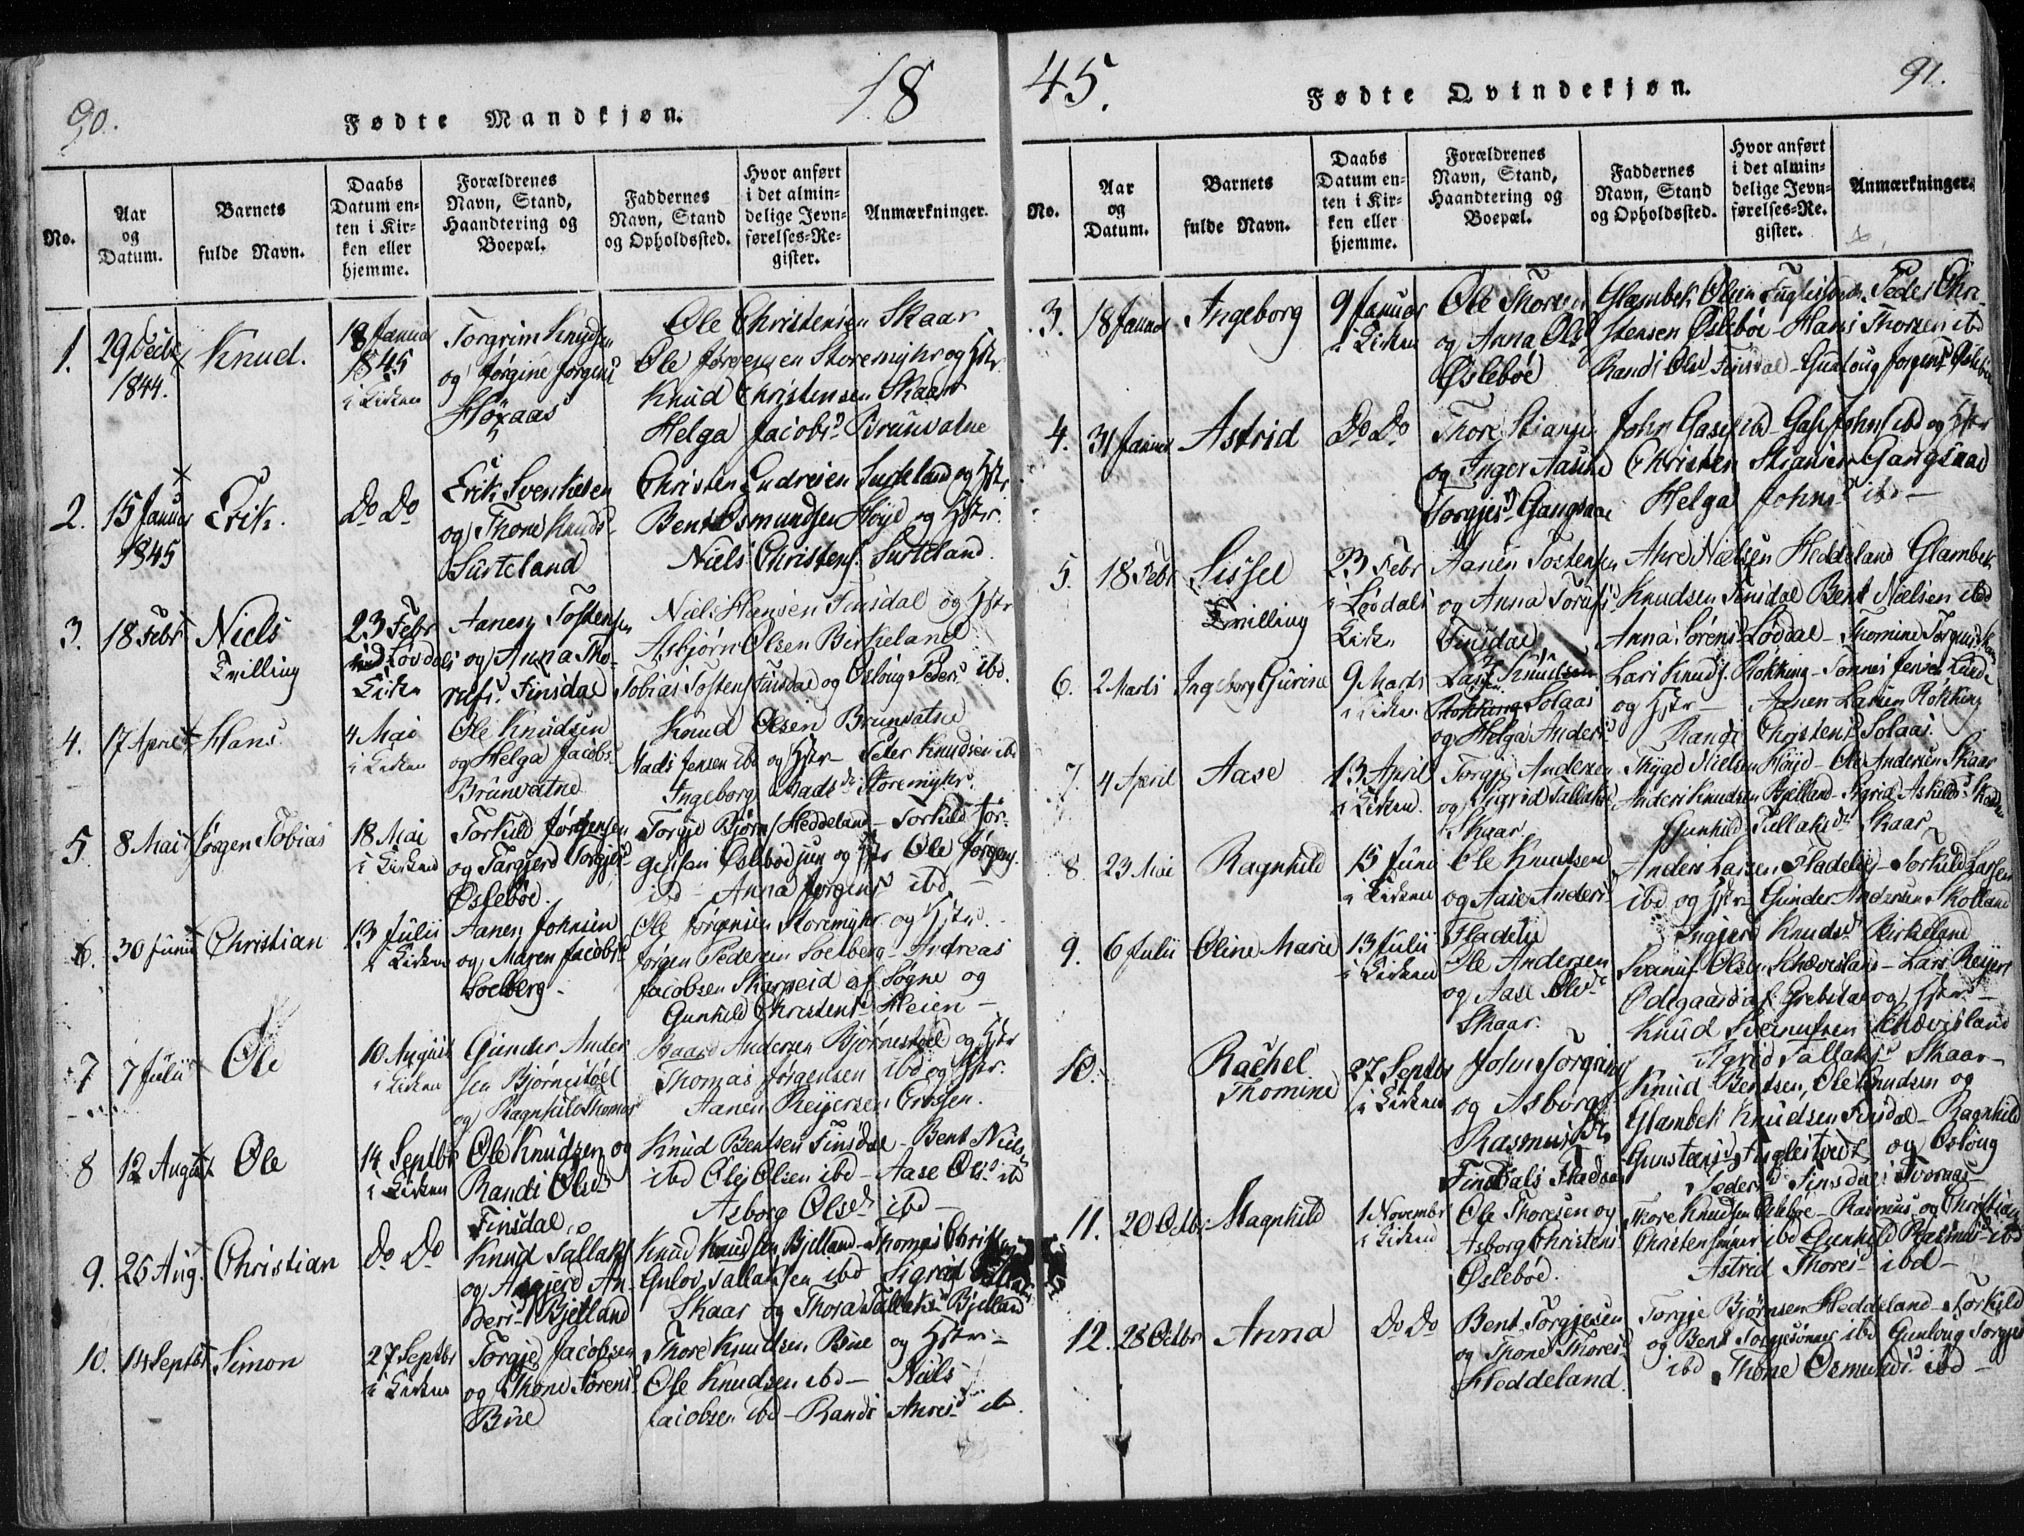 90.
Fødte Mandkjøn.
18
No.
Aar og Datum.
Barnets fulde Navn.
Daabs Datum enten i Kirken eller hjemme.
Forældrenes Navn, Stand, Haandtering og Boepæl.
Faddernes Navn, Stand og Opholdssted.
Hvor anført i det almindelige Jevnførelses-Register.
Anmærkninger.
1. 29 Decbr 1844.
Knud.
18 Januar 1845 i Kirken
Torgrim Knudsen
og Jørgine Jørgens
Ole Christensen Skaar
Ole Jørgensen Storemyhr og Hstr
Knud Christensen Skaar
Helga Jacobsd. Brunvatne
2. 15 Januar 1845
Erik.
Do Do
Erik Svenkesen
og Thone Knuds
Surteland
Christen Endresen Surteland og Hstr
Bent Osmundsen Høyd og Hstr.
Niels Christens. Surteland.
3. 18 Febr
Niels
Tvilling
23 Febr
Løvdals
Kirken
Aanen Tostensen
og Anna Tho-
Finsdal
Niels Hansen Finsdal og Hstr
Asbjørn Olsen Birkeland
Tobias Tostens Finsdal og Osloug Peders ibd.
4. 17 April
Hans
4 Mai
i Kirken
Ole Knudsen
og Helga Jacobs
Brunvatne
Knud Olsen Brunvatne
Mads Jensen ibd og Hstr Peter Knudsen ibd
Ingeborg Madsd. Storemyhr.
5. 8 Mai
Jørgen Tobias
18 Mai
i Kirken
Torkild Jørgensen
og Targjerd Torgjes
Øslebøe.
Torgje Bjørns Heddeland - Torkild Jør-
gensen Øslebøe jun og Hstr Ole Jørgens
ibd - Anna Jørgens ibd -
6. 30 Junii
Christian
13 Julii
i Kirken
Aanen Johnsen
og Maren Jacobs
Soelberg -
Ole Jørgensen Storemyhr og Hstr.
Jørgen Pedersen Soelberg - Andreas
Jacobsen Skarpeid af Sogne og
Gunhild Christens Heien -
7 7 Julii
Ole
10 August
i Kirken
Gunder Ander
sen Bjørnestøel
og Ragnhild Thomas
Baard Andersen Bjørnestøel og Hstr
Thomas Jørgensen ibd og Hstr.
Aanen Reyersen
8 12 August
Ole
14 Septbr
i Kirken
Ole Knudsen og
Randi Olsd
Finsdal
Knud Bentsen Finsdal - Bent Niels
ibd Ole Olsen ibd - Aase Ols ibd
Asborg Olsd. ibd -
9. 25 Aug.
Christian
Do Do
Knud Tallaks
og Asgjerd An-
ders Bjelland
Knud Knudsen Bjelland - Thomas Christen
Gulov Tallaksen ibd Sigrid
Skaar og Thora Tallaks Bjelland
10. 14 Septbr
Simon
27 Septbr
i Kirken
Torgje Jacobsen
og Thone Sørens
Bue
Thore Knudsen Bue og Hstr -
Ole Knudsen ibd - Niels
Jacobsen ibd - Randi Ahres ibd.
45.
Fødte Qvindekjøn.
91.
No.
Aar og Datum.
Barnets fulde Navn.
Daabs Datum enten i Kirken eller hjemme.
Forældrenes Navn, Stand, Haandtering og Boepæl.
Faddernes Navn, Stand og Opholdssted.
Hvor anført i det almindelige Jevnførelses-Re. gister.
Anmærkninger.
3. 18 Januar
Ingeborg
9 Januar
i Kirken
Ole Thoresen
og Anna Ols
Øslebøe
Glambek Olsen Fuglestvedt Peder Chri-
stensen Øslebøe - Hans Thorsen ibd
Randi Ols Finsdal - Gunloug Jørgens Øslebøe
4. 31 Januar
Astrid
Do Do
Thore Stians
og Inger Aasine
Torgjes Gangsaae
John Gases ibd Gase Johns ibd og Hstr
Christen Stiansen Gangsaae
Helga Johns ibd -
5. 18 Febr
Sissel
Tvilling
23 Febr
i Løvdals
Kirken
Aanen Tostensen
og Anna Torufs
Finsdal
Ahre Nielsen Heddeland Glambek
Knudsen Finsdal Bent Nielsen ibd
Anna Sørens Løvdal - Thomine Torgrims
6. 2 Marts
Ingeborg Gurine
9 Marts
i Kirken
Knudsen
Solaas
og Helga Anders
Lars Knuds. Røkking - Tønnes Jensen Lande
og Hstr - Aanen Larsen Røkking
Randi Christens Solaas.
7. 4 April
Aase
13 April
i Kirken
Torgje Andersen
og Sigrid Tallaks
Skaar.
Thyge Nielsen Høyd - Ole Andersen Skaar
Anders Knudsen Bjelland - Sigrid Askilds
Gunhild Tallaksd Skaar
8. 23 Mai
Ragnhild
15 Juni
i Kirken
Ole Knudsen
og Aase Anders
Fladelie
Anders Larsen Fladelie - Torkild Larsen
ibd og Hstr - Gunder Andersen Skolland
Ingjerd Knudsd Birkeland
9. 6 Julii
Oline Marie
13 Julii
i Kirken
Ole Andersen
og Aase Olsd
Skaar.
Svenuf Olsen Schævesland - Lars Reyers
Ødegaard af Grebstad og Hstr -
Knud Svenufsen Schævesland
Sigrid Tallaks Skaar -
10.
Rachel
Thomine
27 Septbr
i Kirken
John Torgrims
og Asborg
Rasmusd.
Finsdals
Knud Bentsen, Ole Knudsen og
Glambek Knudsen Finsdal - Ragnhild
Gunsteens Fuglestvedt og Osloug
Peders Finsdal
11. 20 Octbr
Magnhild
1 Novembr
i Kirken
Ole Thoresen og
Asborg Christens
Øslebøe.
Thore Knudsen Øslebøe - Rasmus og Christian
Christensønner ibd Gunhild Rasmus ibd
Astrid Thores ibd -
12. 28 Octbr
Anna
Do Do
Bent Torgjesen
og Thone Thores
Heddeland.
Torgje Bjørnsen Heddeland - Torkild
og Bent Torgjesønner ibd Gunloug Torgjes
ibd Thone Osmunds ibd -